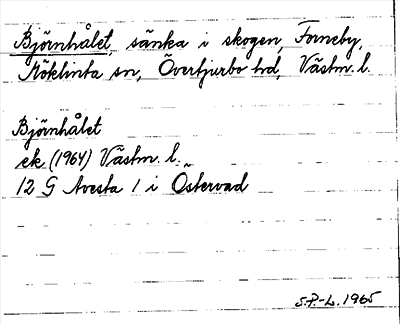 Björnhålet, sänka i skogen, Forneby,
Möklinta sn, Övertjurbo hd, Västm. l.
Björnhålet
ek. (1964) Västm. l.
12 G Avesta 1 i Östervad
S.P.-L. 1965